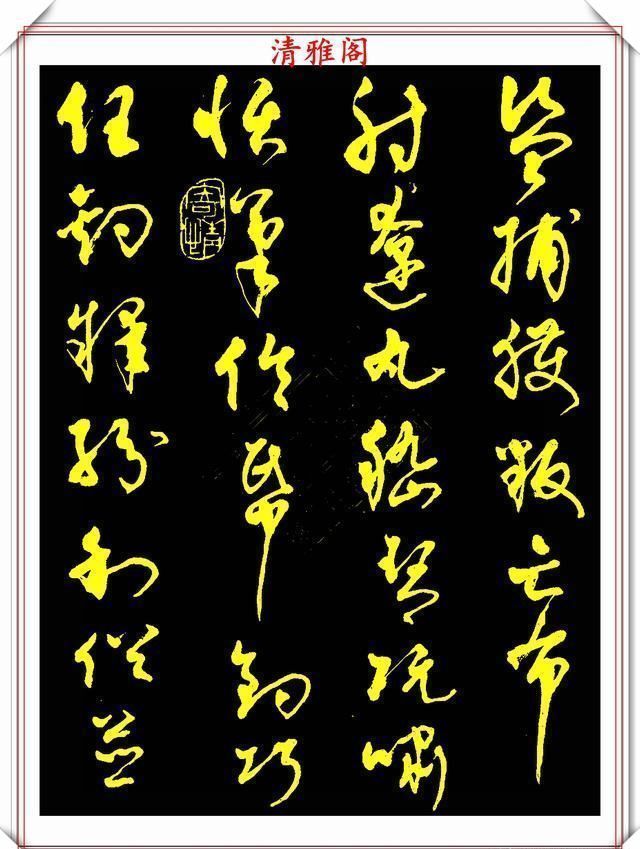 清雅阁
盜捕獲叛亡布
射遼丸嵇琴阮嘯
恬筆倫帋鈞巧
任釣釋紛利俗並